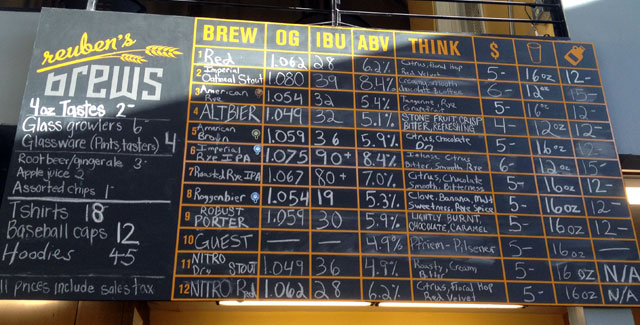 reuben's
brews
4oz Tastes 2-
Glass growlers 6
Glassware (Pints, tasters) 4
Root beer/ginger ale 3-
Apple juice 2
Assorted chips 1-
Tshirts 18
Baseball caps 12
Hoodies 45
All prices include sales tax
BREW OG IBU ABV THINK $
1 Red 1.062 28 6.2% Citrus, floral Hop Red Velvet 5- 16oz 12-
2 Imperial Oatmeal Stout 1.080 39 8.4% creamy, smooth chocolate, coffee 6- 12oz 15-
3 American Rye 1.054 32 5.4% Tangerine, Rye Grapefruit 5- 16oz 12-
4 ALTBIER 1.049 32 5.1% STONE FRUIT, CRISP BITTER, REFRESHING 4 12oz 12-
5 American Brown 1.059 36 5.9% Citrus, Chocolate 5- 16oz 12-
6 Imperial Rye IPA 1.075 90+ 8.4% Intense Citrus Bitter, Smooth Rye 6- 12oz 15-
7 Roasted Rye IPA 1.067 80+ 7.0% Citrus, Chocolate Smooth, Bitterness 5- 16oz 12-
8 Roggenbier 1.054 19 5.3% Clove, Banana, Malt Sweetness, Rye Spice 5- 16oz 12-
9 ROBUST PORTER 1.059 30 5.9% LIGHTLY BURNT CHOCOLATE, CARAMEL 5- 16oz 12-
10 GUEST — — 4.9% Pfriem - Pilsener 5- 16oz -
11 NITRO Dry STOUT 1.049 36 4.9% Roasty, Creamy 5- 16oz N/A
12 NITRO Red 1.062 28 6.2% Citrus, floral Hop Red Velvet 5- 16oz N/A